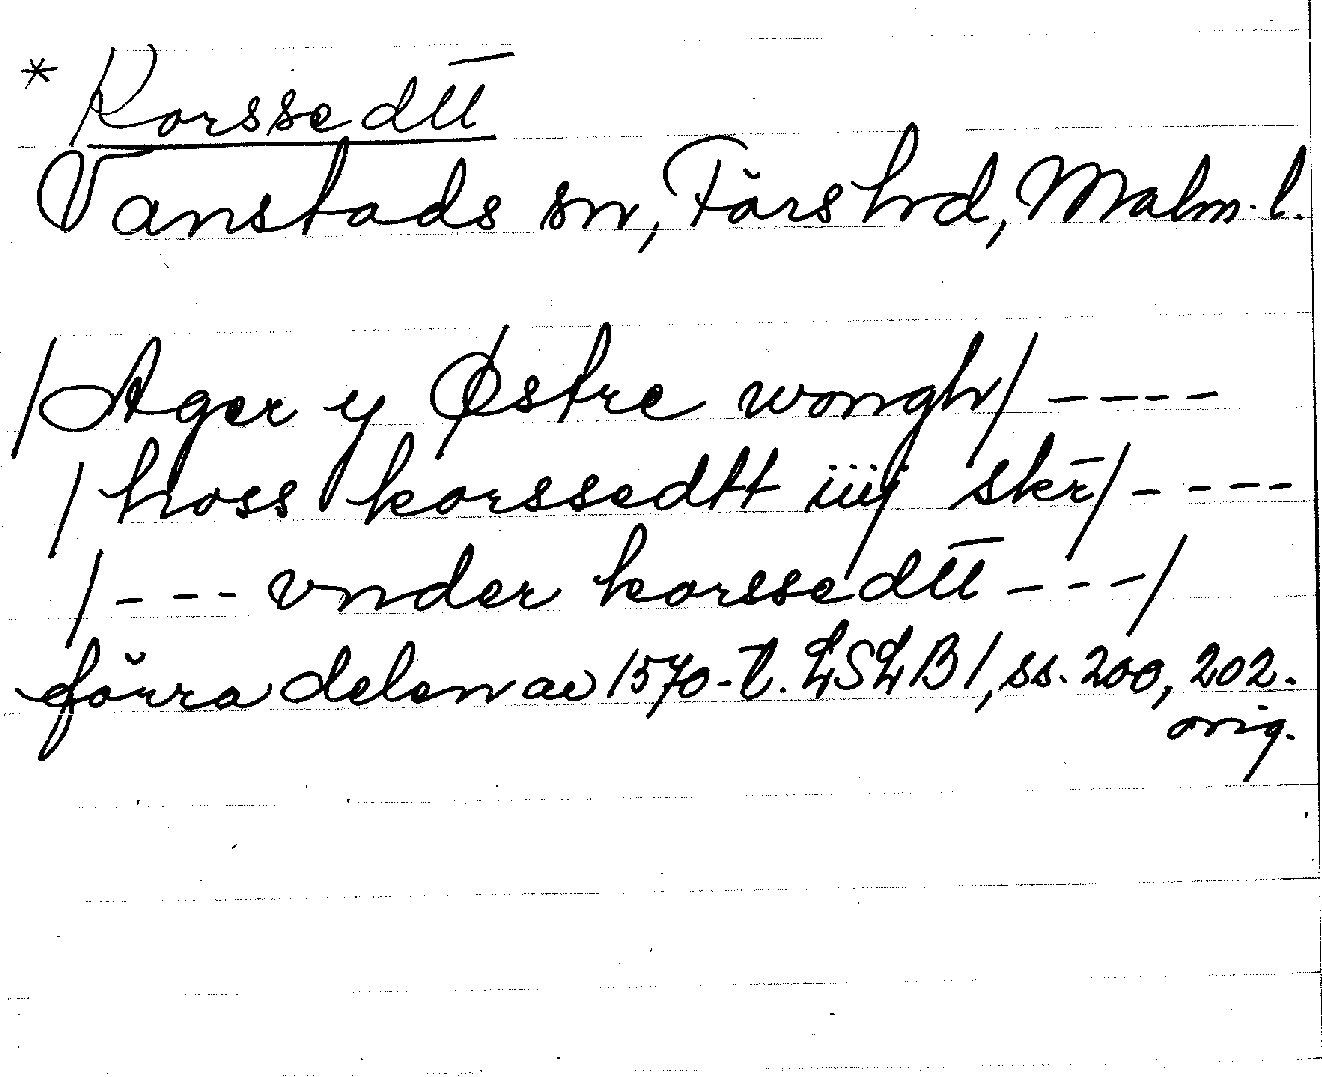 * Korssedtt
Vanstads sn, Färs hrd, Malm. l.
/Ager y Østre wongh/ ----
/hoss korssedtt iiij skr̄/ ----
/--- vnder korssedtt ---/
förra delen av 1570-t. LSLB 1, ss. 200, 202.
orig.